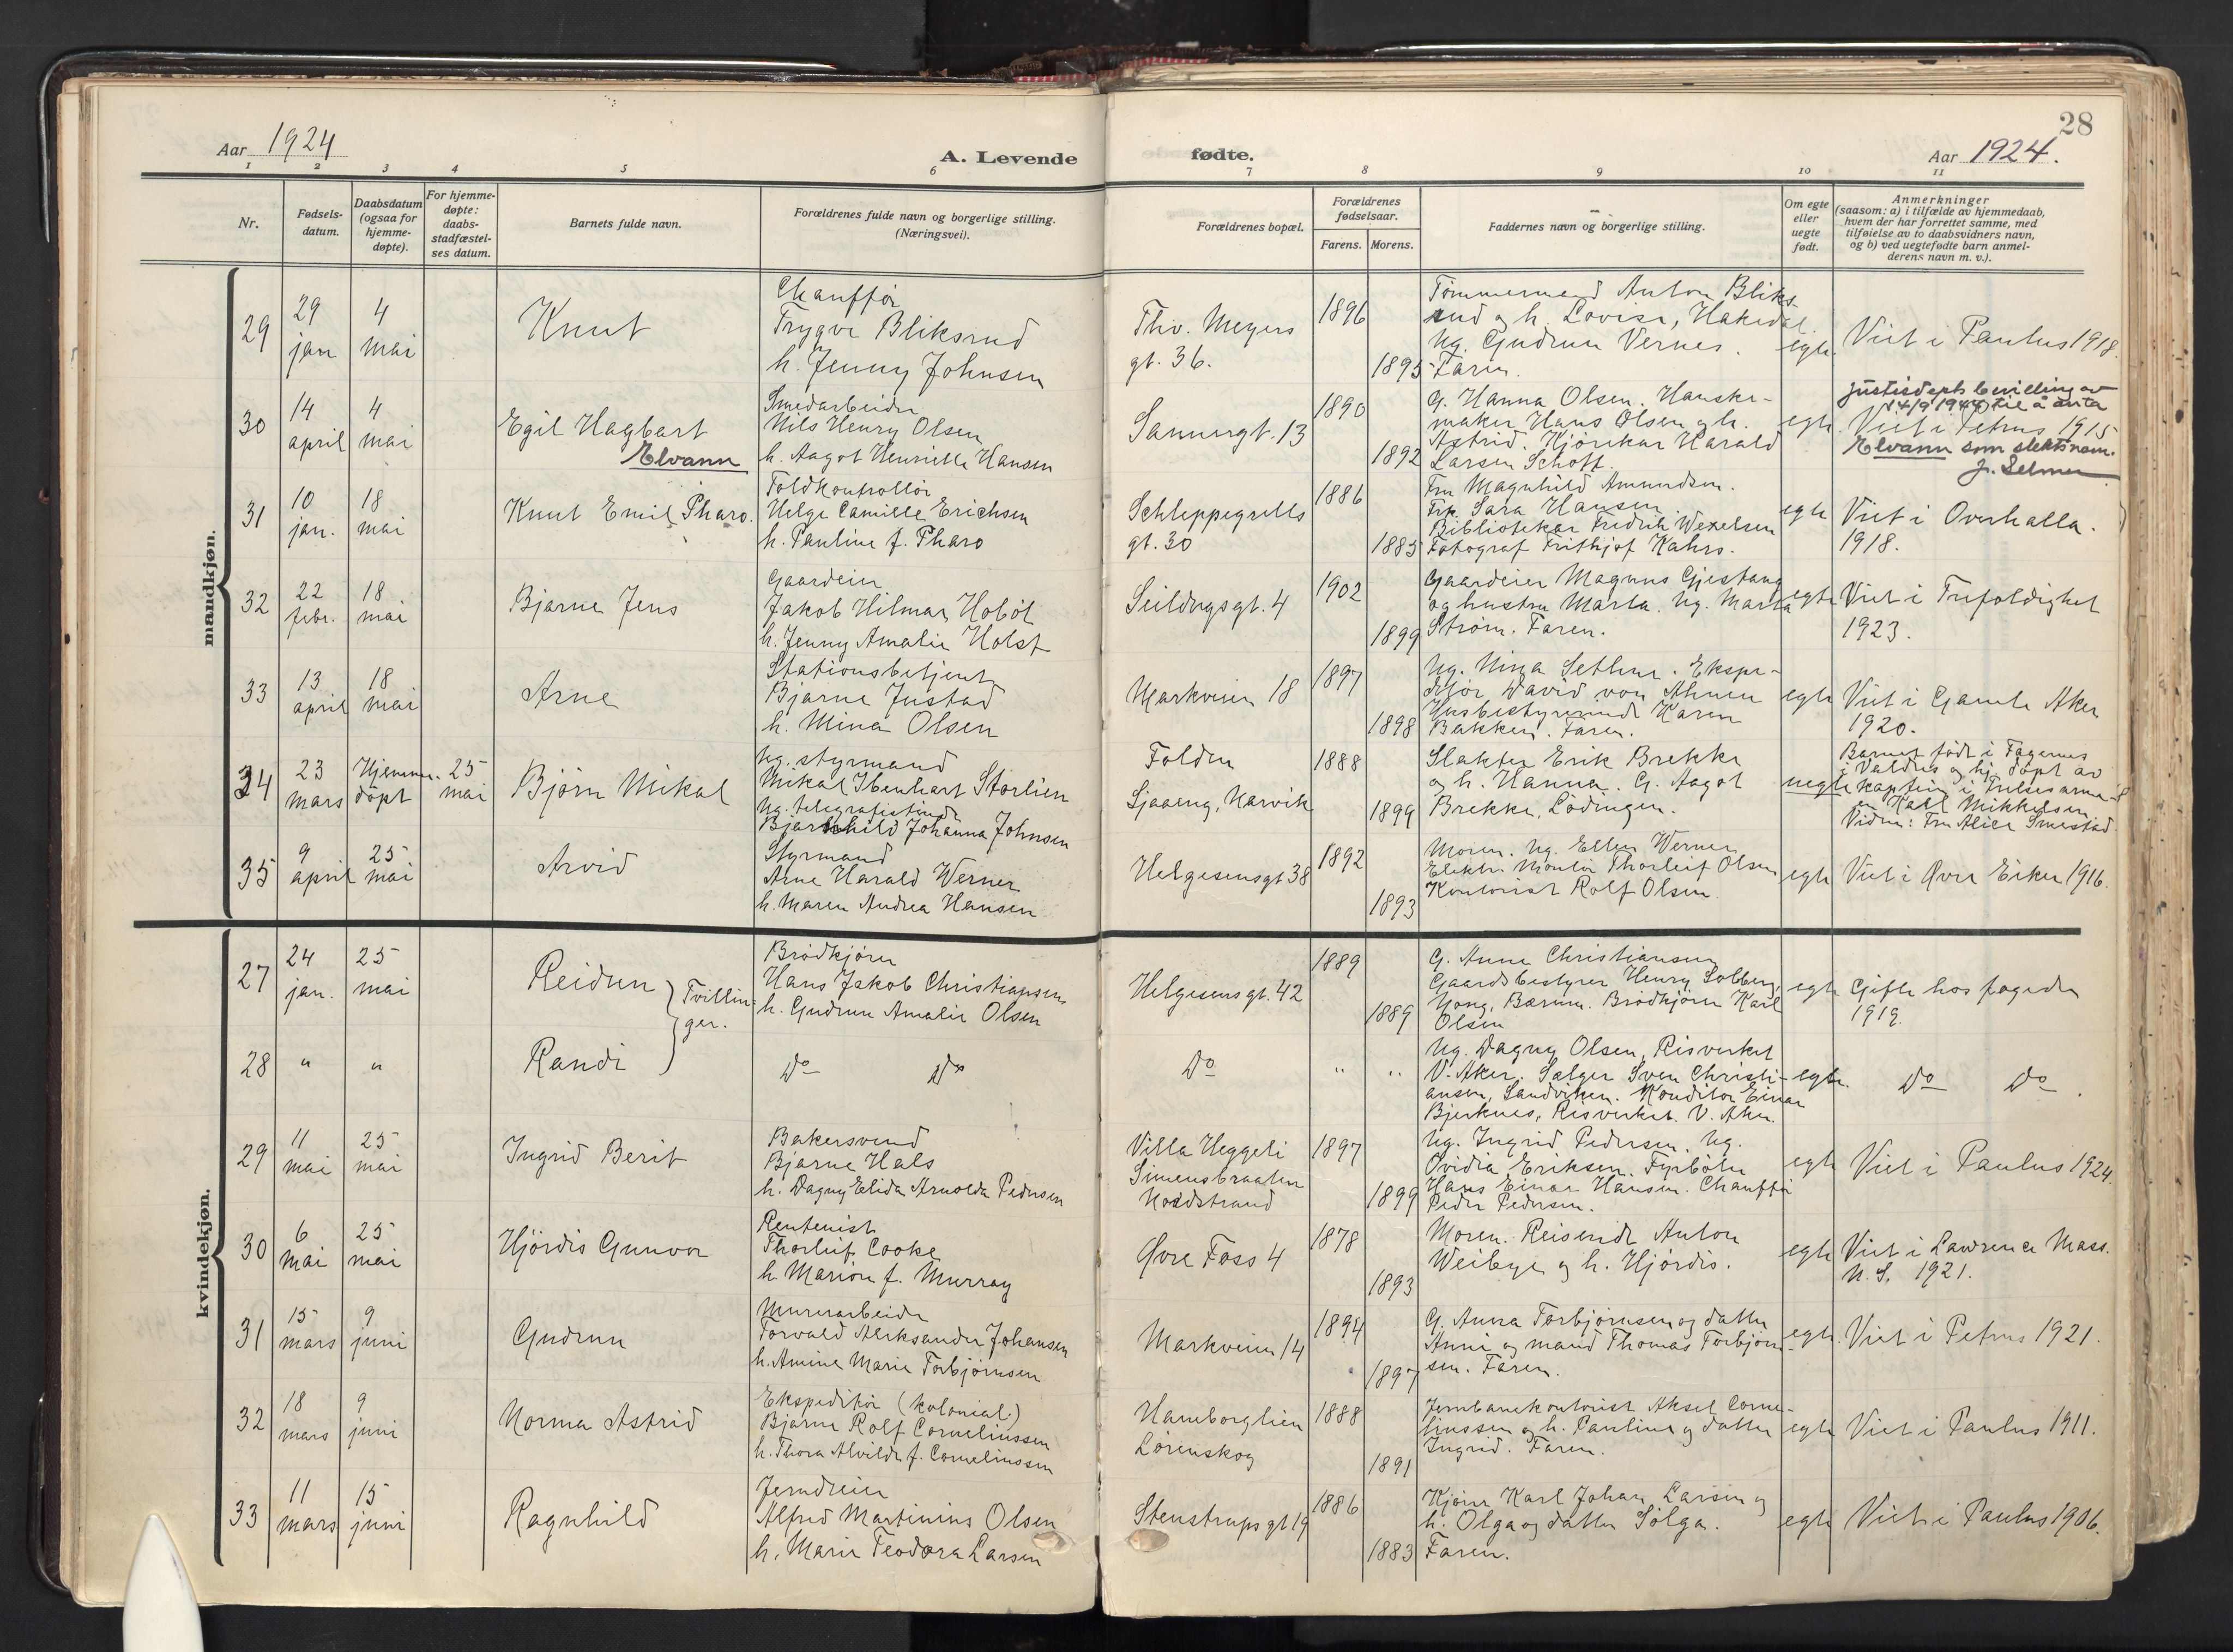 28
Aar 1924
A. Levende
fødte.
Aar 1924.
1 2 3 4 5 6 7 8 9 10 11
Nr.
Fødsels-
datum.
Daabsdatum
(ogsaa for
hjemme-
døpte).
For hjemme-
døpte:
daabs-
stadfæstel-
ses datum.
Barnets fulde navn.
Forældrenes fulde navn og borgerlige stilling.
(Næringsvei).
Forældrenes bopæl.
Forældrenes
fødselsaar.
Farens. Morens.
Faddernes navn og borgerlige stilling.
Om egte
eller
uegte
født.
Anmerkninger
(saasom: a) i tilfælde av hjemmedaab,
hvem der har forrettet samme, med
tilføielse av to daabsvidners navn,
og b) ved uegtefødte barn anmel-
derens navn m. v.).
mandkjøn.
29
29
jan
4
mai
Knut
Chauffør
Trygve Bliksrud
h. Jenny Johnsen
Thv. Meyers
gt. 36.
1896
1895
Tømmermand Anton Bliks-
rud og h. Lovise, Hakedal.
Ug. Gudrun Vernes.
Faren.
egte
Viet i Paulus 1918.
30
14
april
4
mai
Egil Hagbart
Elvann
Smedarbeider
Nils Henry Olsen
h. Aagot Henriette Hansen
Sannergt. 13
1890
1892
G. Hanna Olsen. Hanske-
maker Hans Olsen og h.
Astrid. Kjørekar Harald
Larsen Schott.
egte
Justisdepts bevilling av
14/9 1940 til å anta
Viet i Petrus 1915
Elvann som slektsnavn.
J. Selmer
31
10
jan.
18
mai
Knut Emil Pharo.
Toldkontrollør
Helge Camille Erichsen
h. Pauline f. Pharo
Schleppegrells
gt. 30
1886
1885
Fru Magnhild Amundsen.
Frk. Sara Hansen.
Bibliotekar Fredrik Wexelsen
Fotograf Frithjof Kahrs.
egte
Viet i Overhalla.
1918.
32
22
febr.
18
mai
Bjarne Jens
Gaardeier
Jakob Hilmar Hobøl
h. Jenny Amalie Holst
Seildugsgt. 4
1902
1899
Gaardeier Magnus Gjestang
og hustru Marta. Ug. Marta
Strøm. Faren.
egte
Viet i Trefoldighet
1923.
33
13
april
18
mai
Arne
Stationsbetjent
Bjarne Justad
h. Mina Olsen
Markveien 18
1897
1898
Ug. Nina Sethne. Ekspe-
ditør David von Ahnen
Husbestyrerinde Karen
Bakken. Faren.
egte
Viet i Gamle Aker
1920.
34
23
mars
Hjemme-
døpt
25
mai
Bjørn Mikal
Ug. styrmand
Mikal Ibenhart Storlien
Ug. telegrafistinde
Bjarnhild Johanna Johnsen
Folden
Sjaaeng, Narvik
1888
1899
Slakter Erik Brekke
og h. Hanna. G. Aagot
Brekke, Lødingen.
uegte
Barnet født i Fagernes
i Valdres og hj. døpt av
kaptein i Frelsesarme-
en Karl Mikkelsen
Vidne: Fru Alice Smestad
35
9
april
25
mai
Arvid
Styrmand
Arne Harald Werner
h. Maren Andrea Hansen
Helgesensgt 38
1892
1893
Moren. Ug. Ellen Werner
Elektr. Montør Thorleif Olsen
Kontorist Rolf Olsen.
egte
Viet i Øvre Eiker 1916.
kvindekjøn.
27
24
jan.
25
mai
Reidun
Tvillin-
ger.
Brødkjører
Hans Jakob Christiansen
h. Gudrun Amalie Olsen
Helgesens gt. 42
1889
1889
G. Anna Christiansen
Gaardsbestyrer Henry Solberg
Yong, Bærum. Brødkjører Karl
Olsen
egte
Gifte hos fogden
1919.
28
"
"
Randi
Do Do
Do
" "
Ug. Dagny Olsen, Risverket
V. Aker. Sælger Sven Christi-
ansen, Sandviken. Konditor Einar
Bjerknes, Risverket. V. Aker.
egte.
Do Do
29
11
mai
25
mai
Ingrid Berit
Bakersvend
Bjarne Hals
h. Dagny Elida Arnolda Pedersen
Villa Heggeli
Simensbraaten
Nordstrand
1897
1899
Ug. Ingrid Pedersen. Ug.
Ovidia Eriksen. Fyrbøter
Hans Einar Hansen. Chauffør
Peder Pedersen.
egte
Viet i Paulus 1924.
30
6
mai
25
mai
Hjørdis Gunvor
Rentenist
Thorleif Cooke
h. Marion f. Murray
Øvre Foss 4
1878
1893
Moren. Reisende Anton
Weibye og h. Hjørdis.
egte
Viet i Lawrence Mass.
U. S. 1921.
31
15
mars
9
juni
Gudrun
Murerarbeider
Torvald Aleksander Johansen
h. Amina Marie Torbjørnsen
Markveien 14
1894
1897
G. Anna Torbjørnsen og datter
Anni og mand Thomas Torbjørn-
sen. Faren.
egte.
Viet i Petrus 1921.
32
18
mars
9
juni
Norma Astrid
Ekspeditør (kolonial)
Bjarne Rolf Corneliussen
h. Thora Alvilde f. Corneliussen
Haneborglien
Lørenskog
1888
1891
Jernbanekontorist Aksel Corne-
liussen og h. Pauline og datter
Ingrid. Faren.
egte
Viet i Paulus 1911.
33
11
mars
15
juni
Ragnhild
Jerndreier
Alfred Martinius Olsen
h. Marie Teodora Larsen
Stenstrups gt 19
1886
1883
Kjører Karl Johan Larsen og
h. Olga og datter Solga.
Faren.
egte
Viet i Paulus 1906.